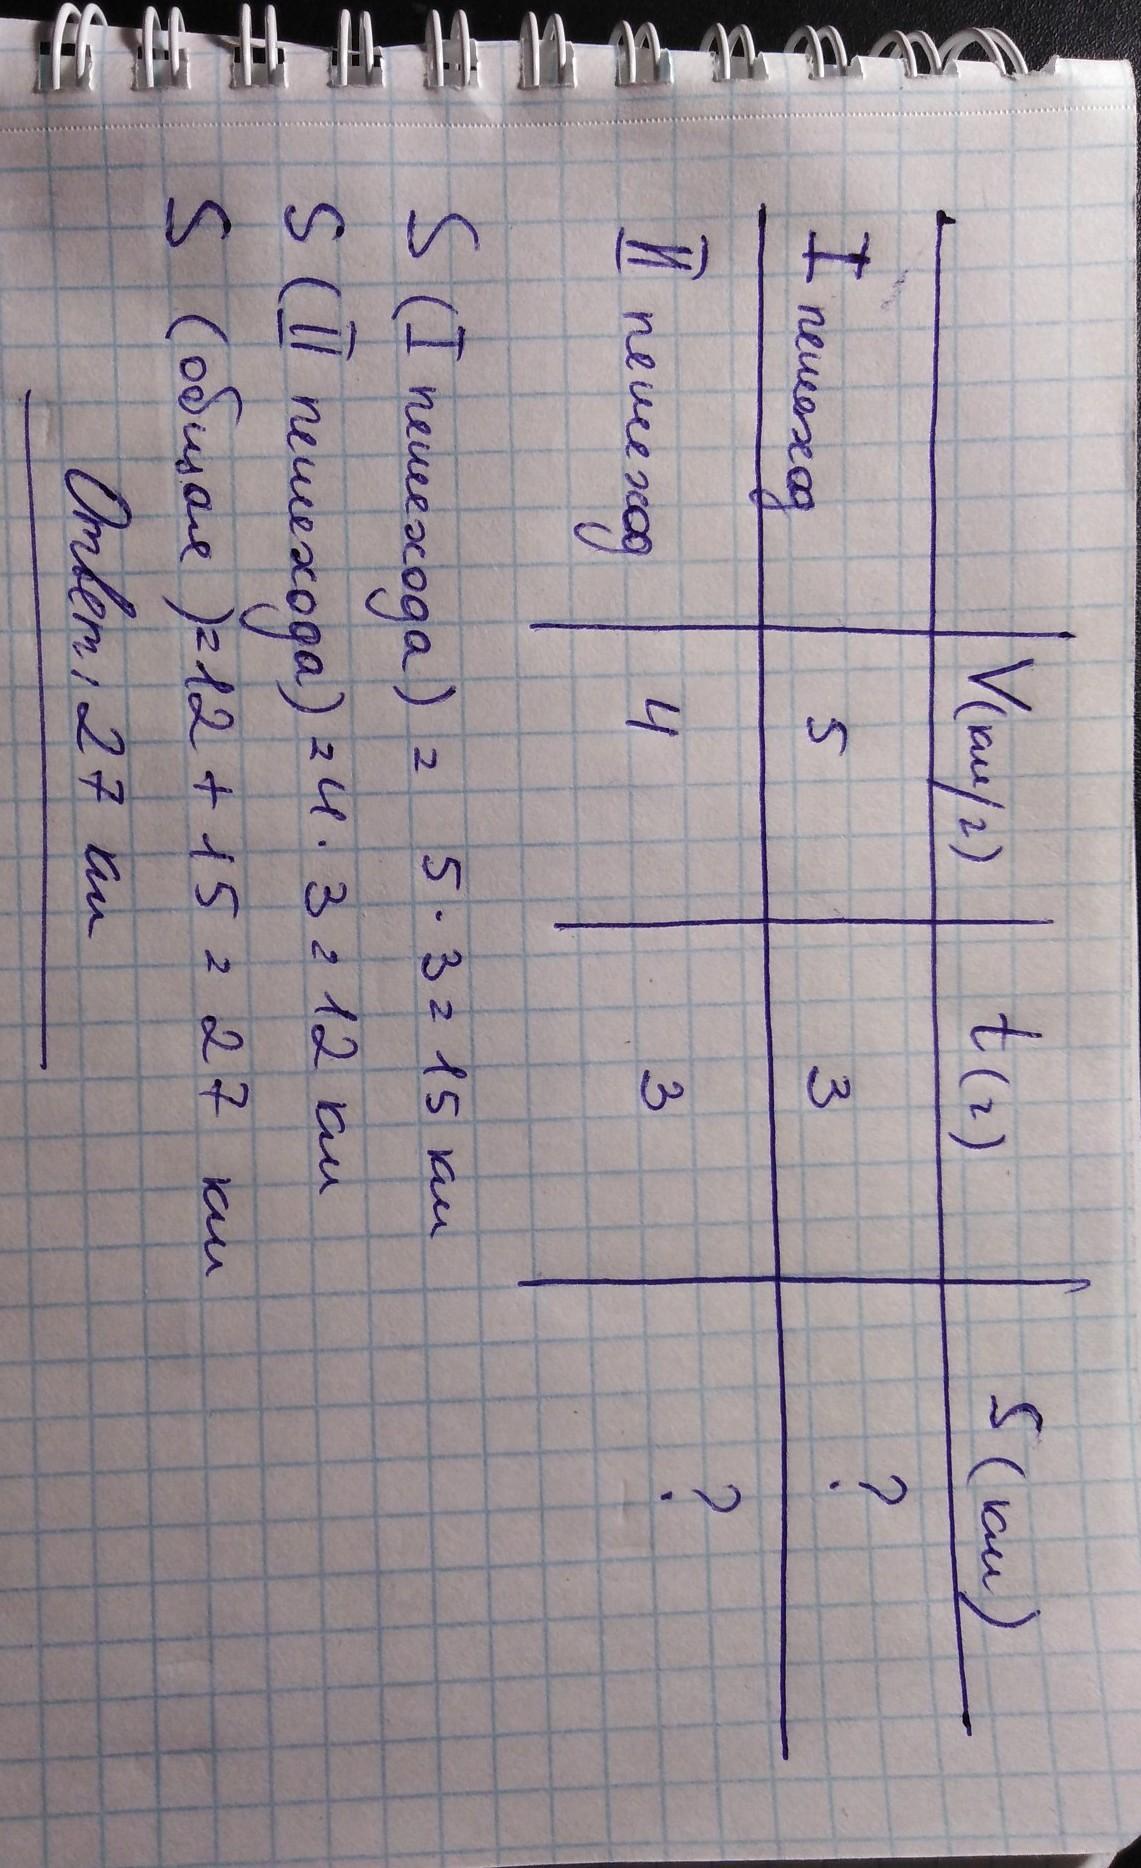 V(км/г) t(г) S(км)
I пешеход 5 3 ?
II пешеход 4 3 ?
S (I пешехода) = 5 · 3 = 15 км
S (II пешехода) = 4 · 3 = 12 км
S (общая) = 12 + 15 = 27 км
Ответ: 27 км